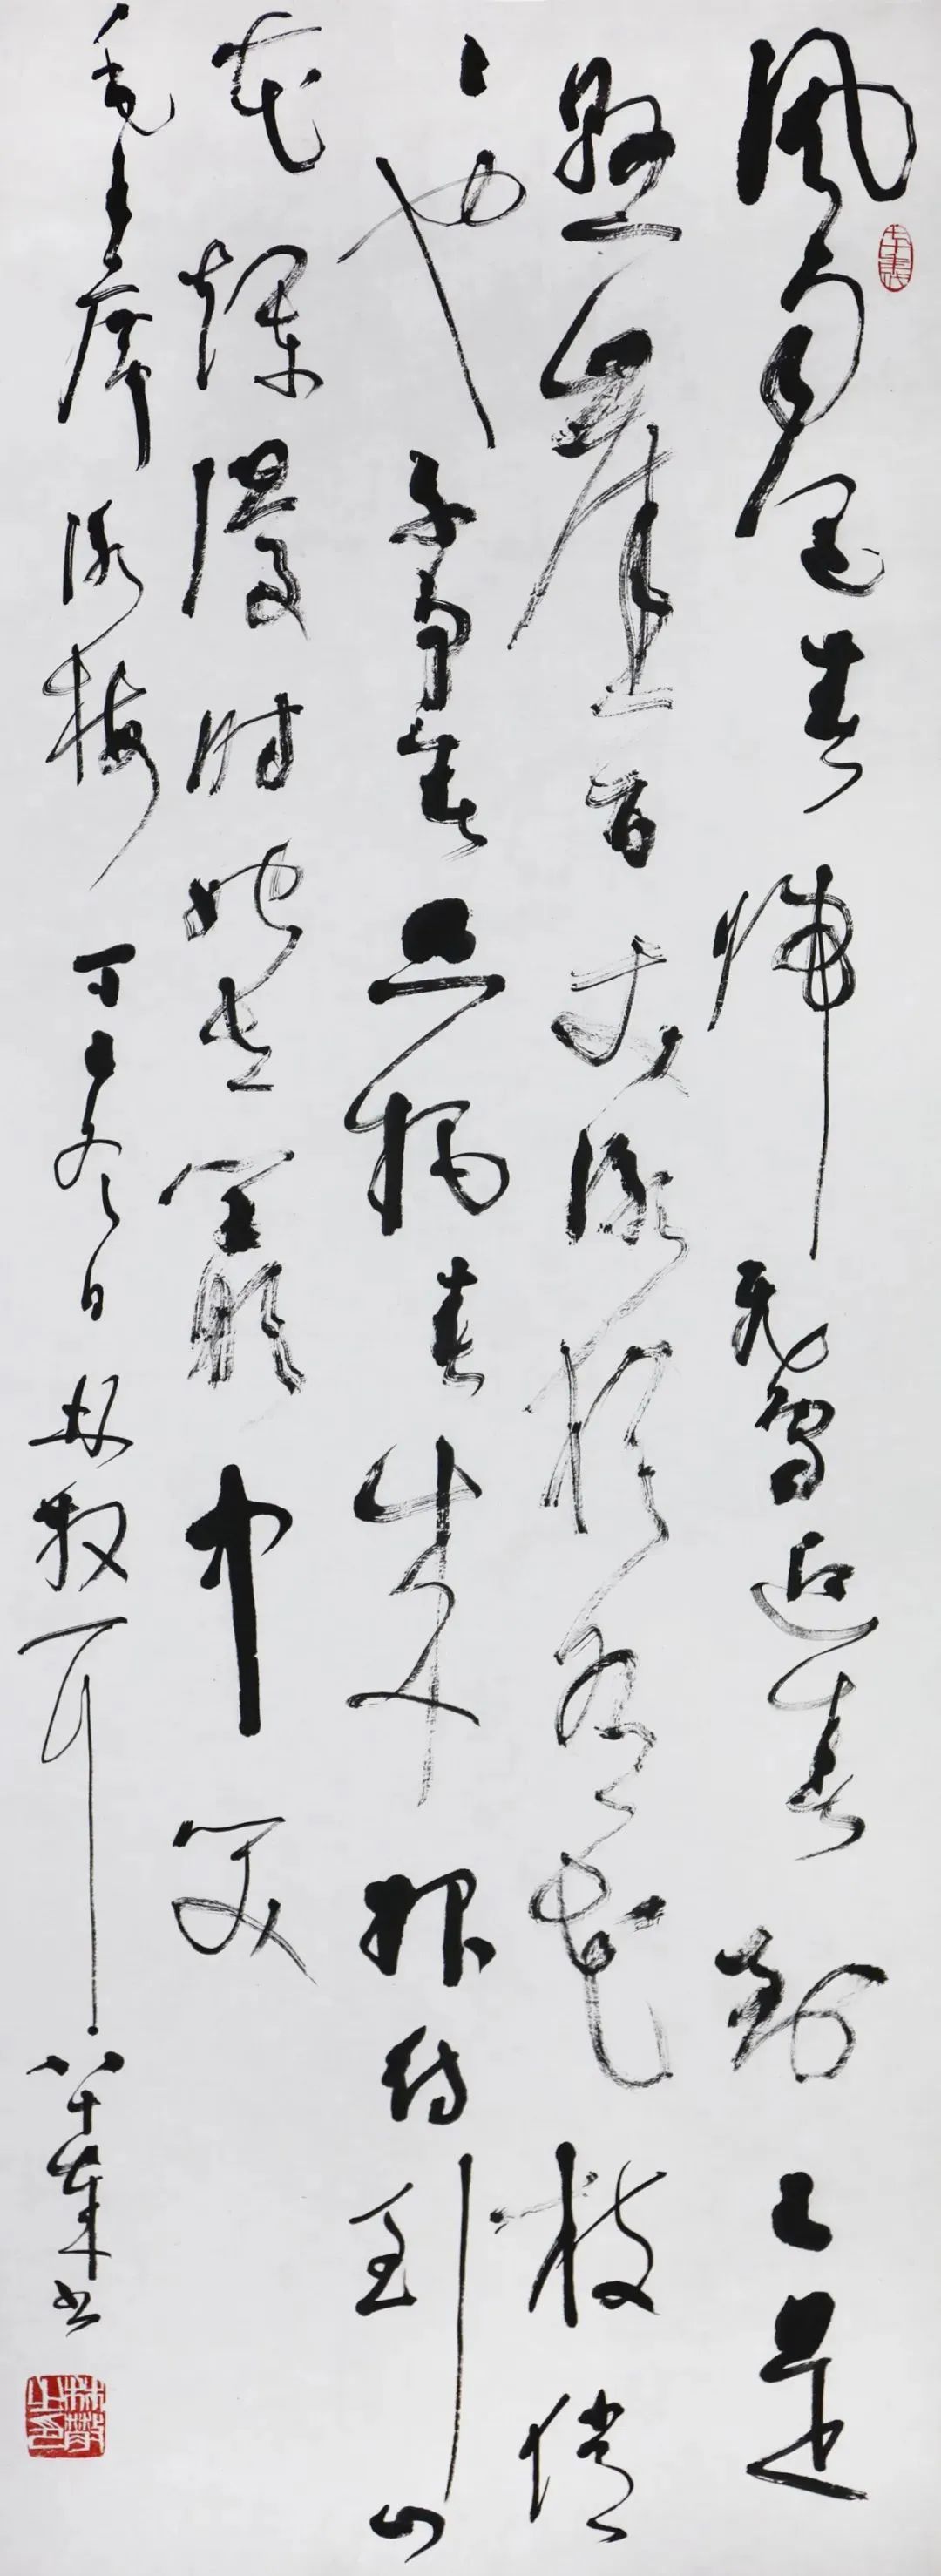 風雨送春歸飛雪迎春到已是
懸崖百丈冰猶有花枝俏
々也不爭春只把春來報待到山
花爛漫時她在叢中笑
毛主席詠梅 丁巳冬日 林散耳 八十書
林散之印